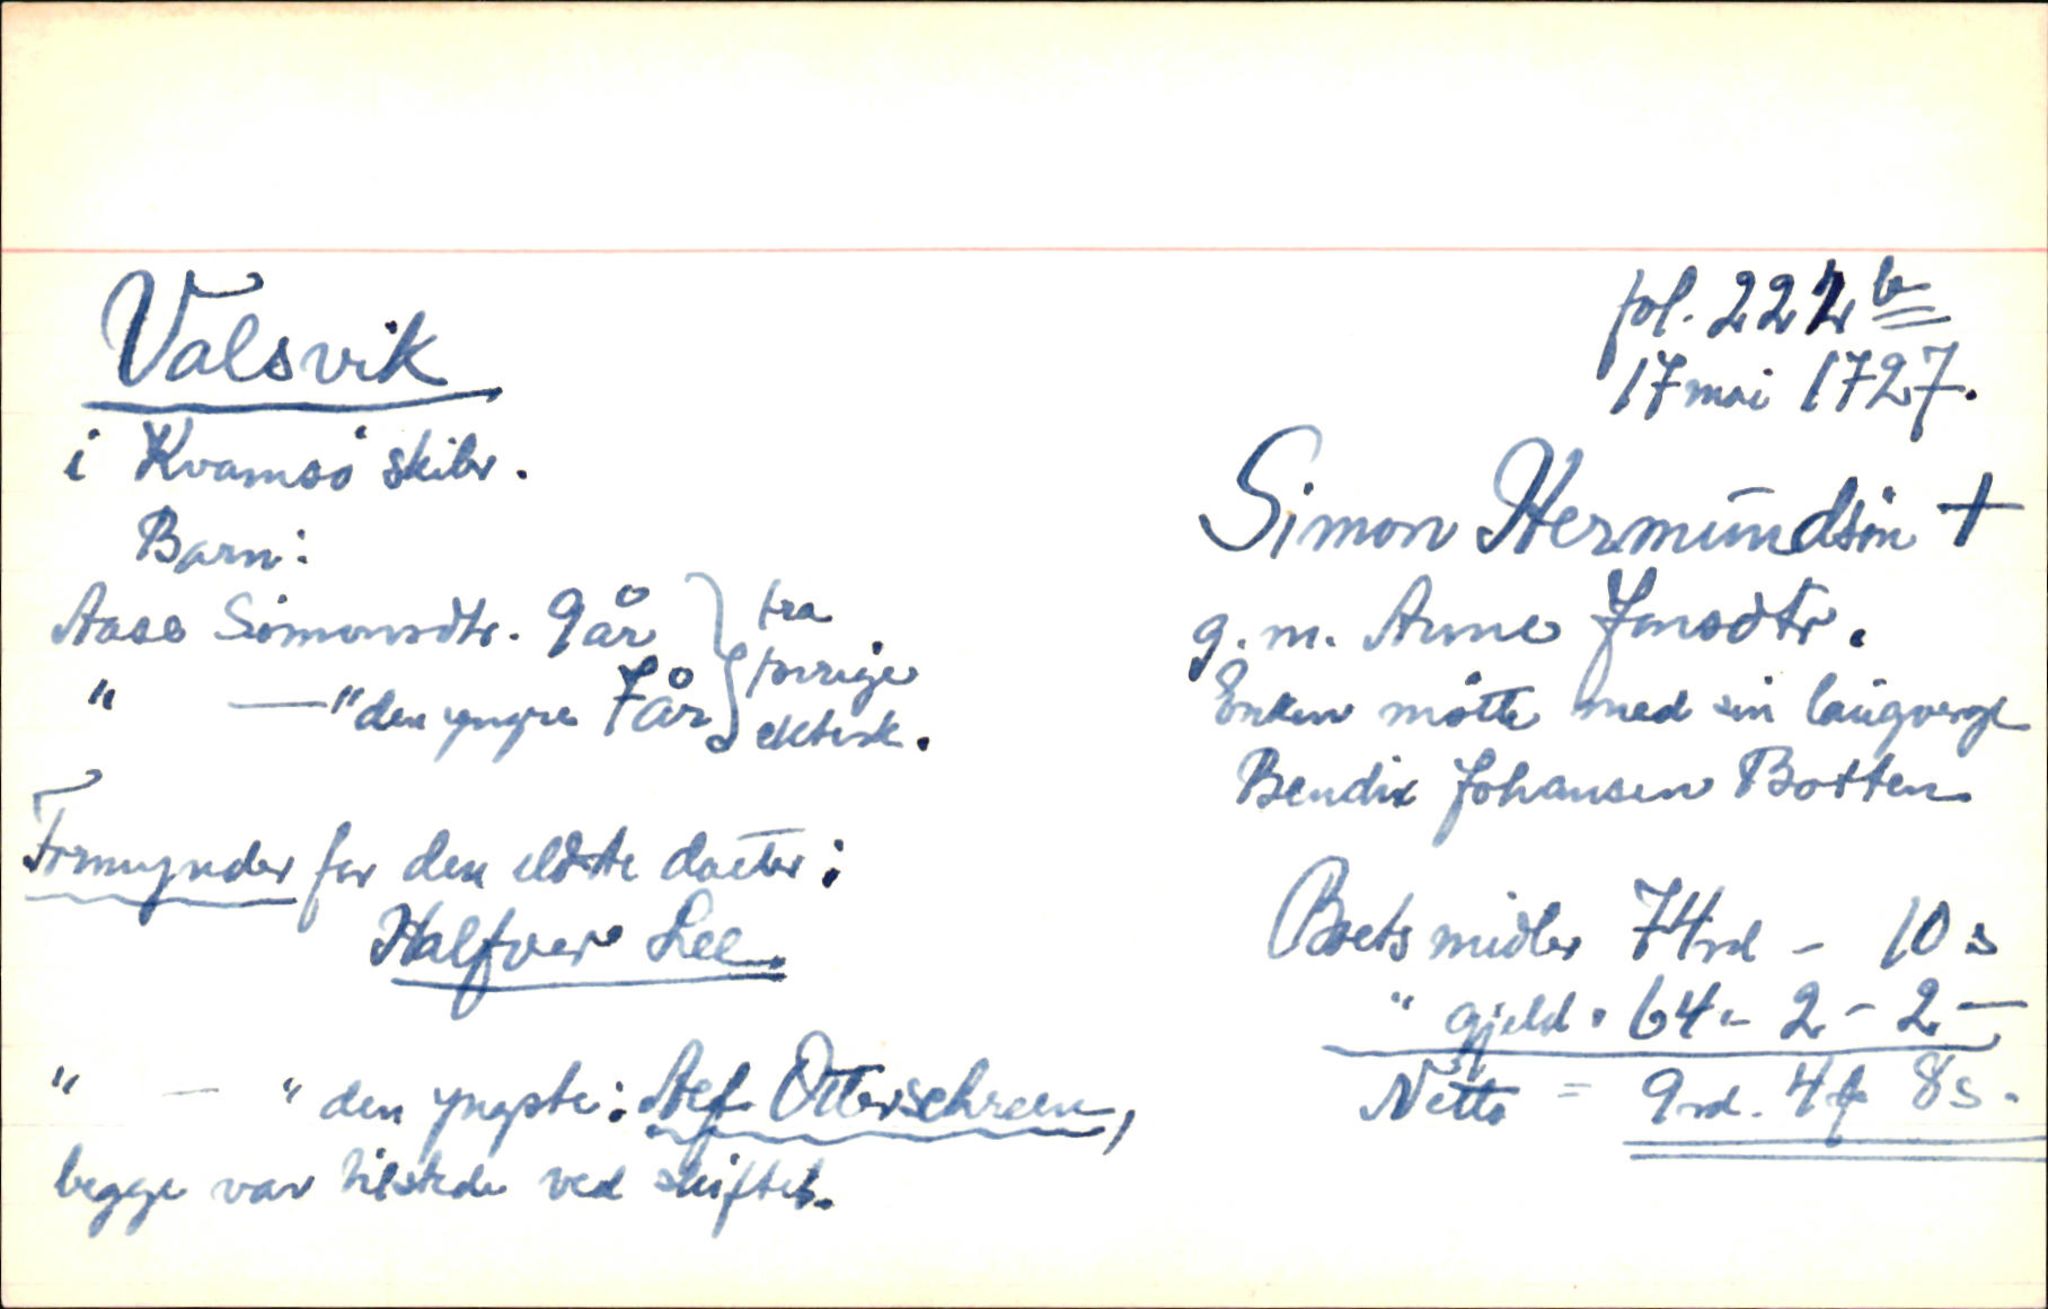 Valsvik
i Kvamsø skibr.
Barn:
Aase Simonsdtr. 9 år
" — " den yngre 7 år
} fra forrige ektesk.
Formynder for den eldste datter:
Halfver Lee.
" — " den yngste: Alef Otterschreen,
begge var tilstede ved skiftet.
fol. 222 b
17 mai 1727.
Simon Hermundsøn +
g. m. Anne Jonsdtr.
Enken møtte med sin laugverge
Bendix Johansen Botten
Boets midler 74 rd - 10 s
" gjeld . 64 - 2 - 2 —
Netto = 9 rd. 4 f 8 s.